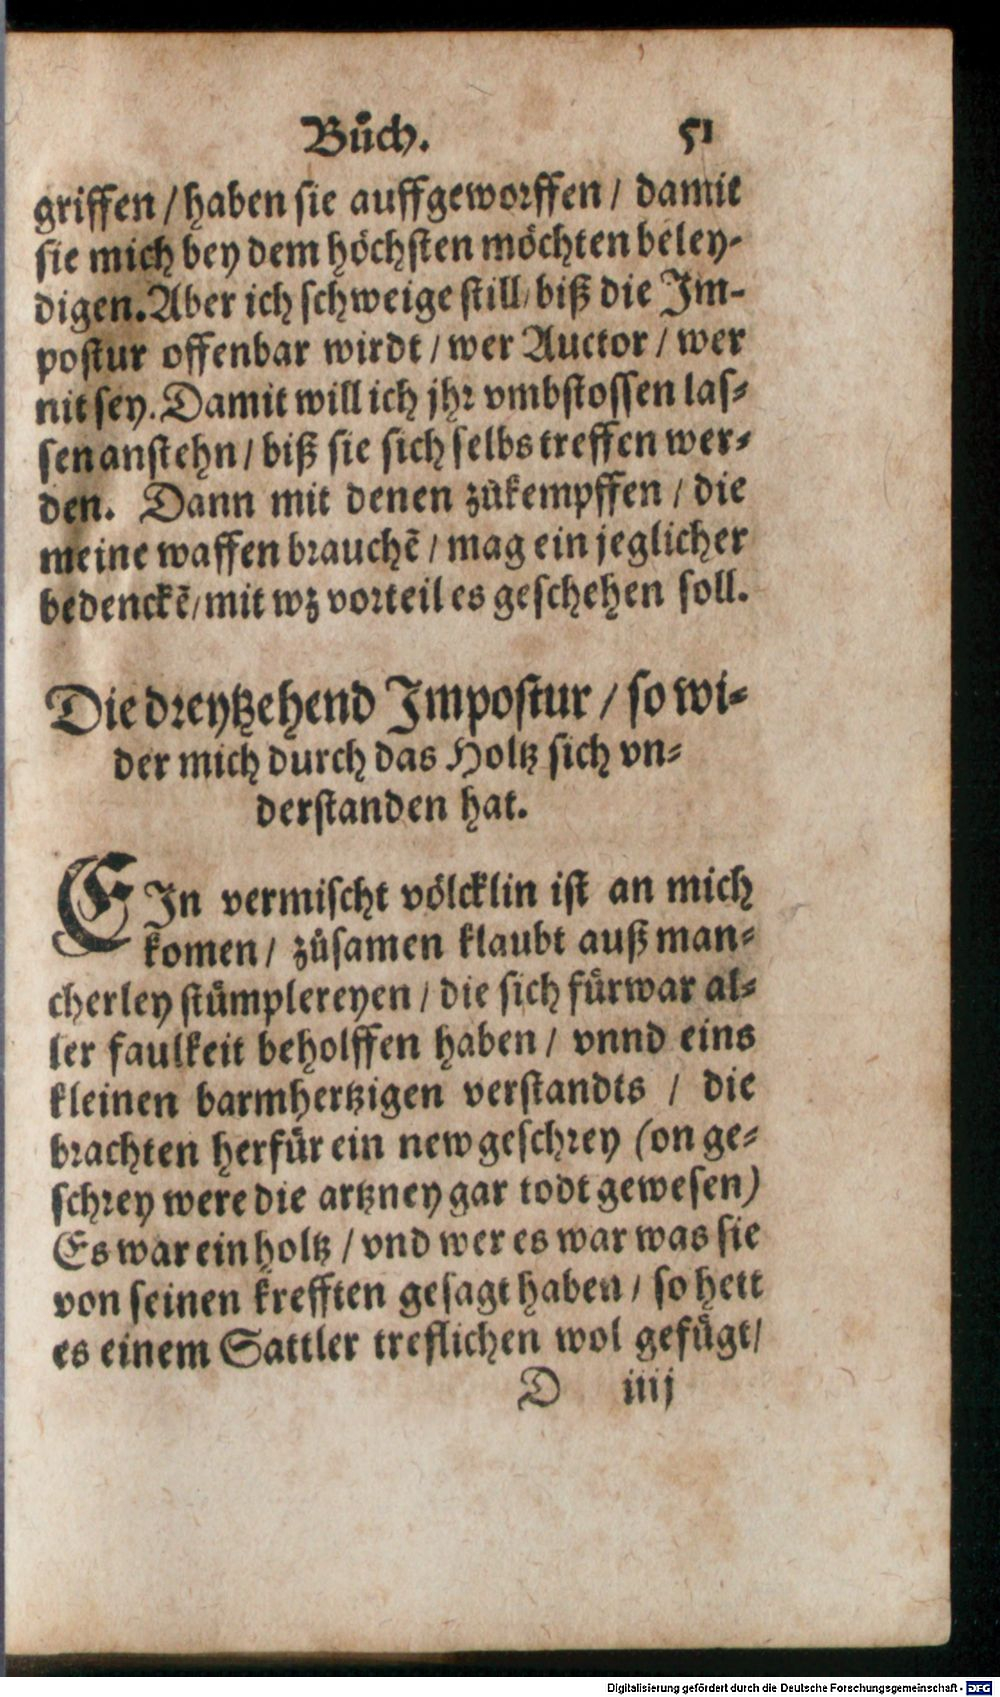 Bůch. 51
griffen / haben sie auffgeworffen / damit
sie mich bey dem höchsten möchten beley-
digen. Aber ich schweige still / biß die Im-
postur offenbar wirdt / wer Auctor / wer
nit sey. Damit will ich jhr vmbstossen las-
sen anstehn / biß sie sich selbs treffen wer-
den. Dann mit denen zůkempffen / die
meine waffen brauchē / mag ein jeglicher
bedenckē / mit wz vorteil es geschehen soll.
Die dreytzehend Impostur / so wi-
der mich durch das Holtz sich vn-
derstanden hat.
EIn vermischt völcklin ist an mich
kōmen / zůsamen klaubt auß man-
cherley stümplereyen / die sich fürwar al-
ler faulkeit beholffen haben / vnnd eins
kleinen barmhertzigen verstandts / die
brachten herfür ein new geschrey (on ge-
schrey were die artzney gar todt gewesen)
Es war ein holtz / vnd wer es war was sie
von seinen krefften gesagt haben / so hett
es einem Sattler treflichen wol gefügt /
D iiij
Digitalisierung gefördert durch die Deutsche Forschungsgemeinschaft - DFG